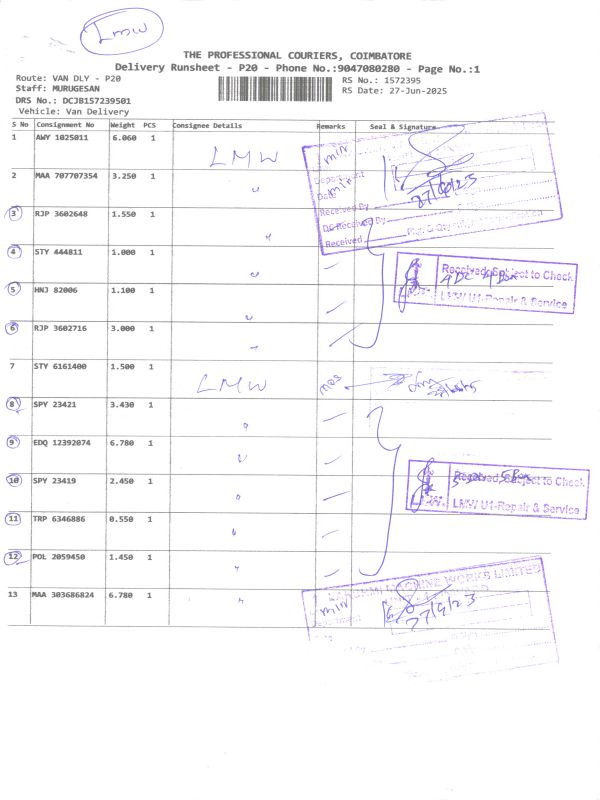 LMW
THE PROFESSIONAL COURIERS, COIMBATORE
Delivery Runsheet - P20 - Phone No.:9047080280 - Page No.:1
Route: VAN DLY - P20
RS No.: 1572395
Staff: MURUGESAN
RS Date: 27-Jun-2025
DRS No.: DCJB157239501
Vehicle: Van Delivery
S No Consignment No Weight PCS Consignee Details Remarks Seal & Signature
1 AWY 1025011 6.060 1 LMW min
2 MAA 707707354 3.250 1 " min
Department
Date
Received By
DC Received By
Received
3 RJP 3602648 1.550 1 "
4 STY 444811 1.000 1 "
Received Subject to Check
LMW U1-Repair & Service
5 HNJ 82006 1.100 1 "
6 RJP 3602716 3.000 1 "
7 STY 6161400 1.500 1 LMW
8 SPY 23421 3.430 1 "
9 EDQ 12392074 6.780 1 "
10 SPY 23419 2.450 1 "
Received Subject to Check
LMW U1-Repair & Service
11 TRP 6346886 0.550 1 "
12 POL 2059450 1.450 1 "
LAKSHMI MACHINE WORKS LIMITED
13 MAA 303686824 6.780 1 " min